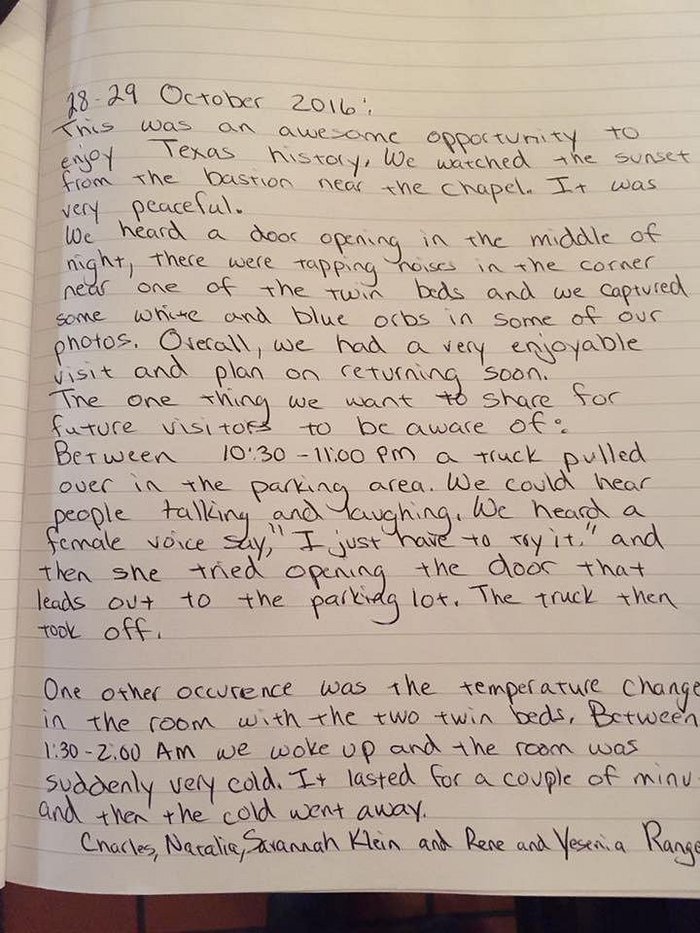 28-29 October 2016:
This was an awesome opportunity to
enjoy Texas history. We watched the sunset
from the bastion near the chapel. It was
very peaceful.
We heard a door opening in the middle of
night, there were tapping noises in the corner
near one of the twin beds and we captured
some white and blue orbs in some of our
photos. Overall, we had a very enjoyable
visit and plan on returning soon.
The one thing we want to share for
future visitors to be aware of:
Between 10:30 - 11:00 pm a truck pulled
over in the parking area. We could hear
people talking and laughing. We heard a
female voice say, "I just have to try it." and
then she tried opening the door that
leads out to the parking lot. The truck then
took off.
One other occurence was the temperature change
in the room with the two twin beds. Between
1:30 - 2:00 AM we woke up and the room was
suddenly very cold. It lasted for a couple of minu
and then the cold went away.
Charles, Natalia, Savannah Klein and Rene and Yesenia Range